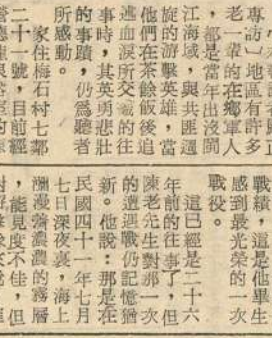 專訪」地區有許多
老一輩的在鄉軍人
，都是當年出沒閩
江海域，與共匪週
旋的游擊英雄，當
他們在茶餘飯後追
述血淚所交織的往
事時，其英勇悲壯
的事蹟，仍為聽者
所感動。
家住梅石村七鄰
二十一號，目前經
戰績，這是他畢生
感到最光榮的一次
戰役。
這已經是二十六
年前的往事了，但
陳老先生對那一次
的遭遇戰仍記憶猶
新。他說：那是在
民國四十一年七月
七日深夜裏，海上
瀰漫著濃濃的霧層
，能見度不佳，但